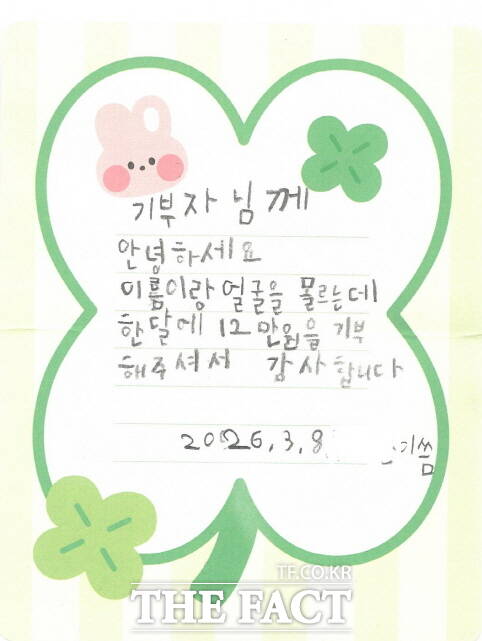 기부자님께
안녕하세요
이름이랑 얼굴을 몰르는데
한달에 12만원을 기부
해주셔서 감사합니다
2026.3.8
이씀
TF.CO.KR
THE FACT